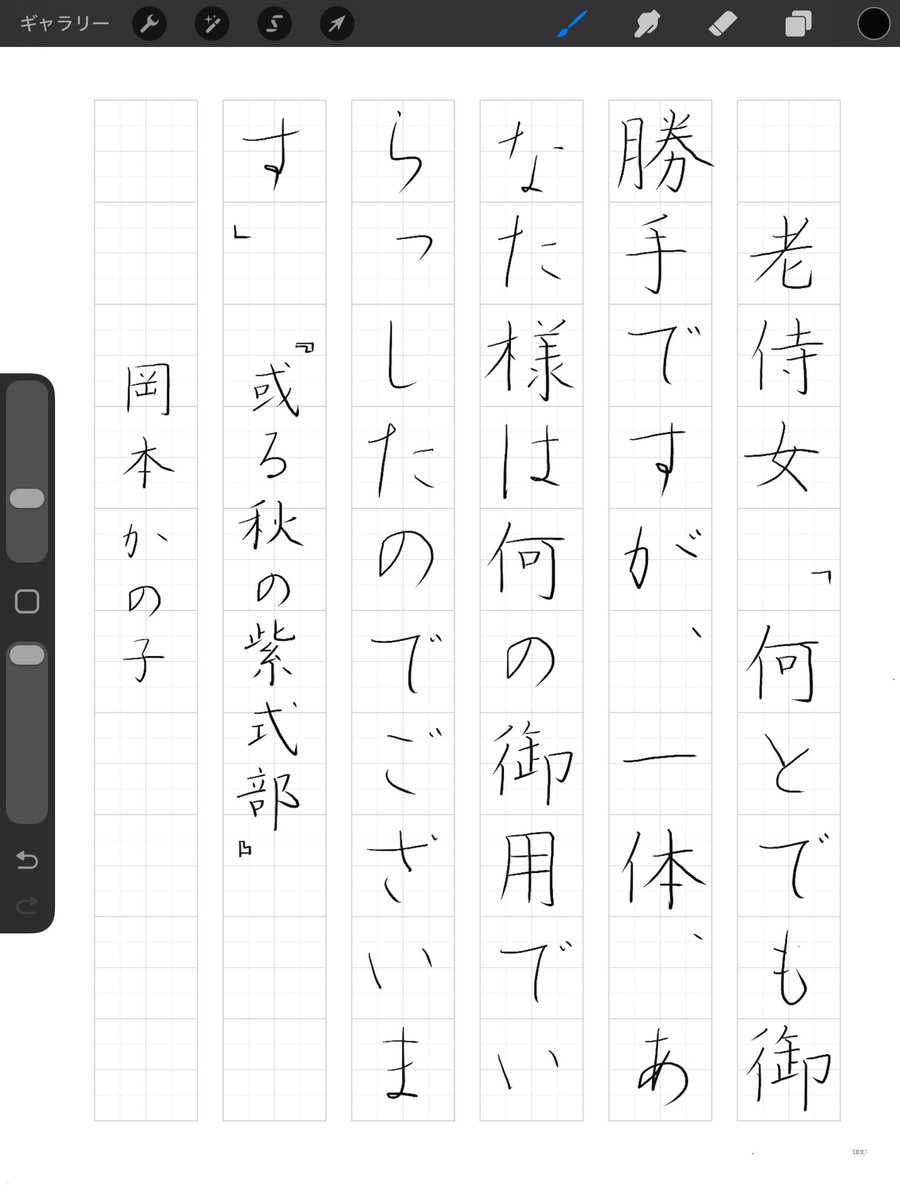 ギャラリー
老侍女「何とでも御
勝手ですが、一体、あ
なた様は何の御用でい
らっしたのでございま
す」
『或る秋の紫式部』
岡本かの子